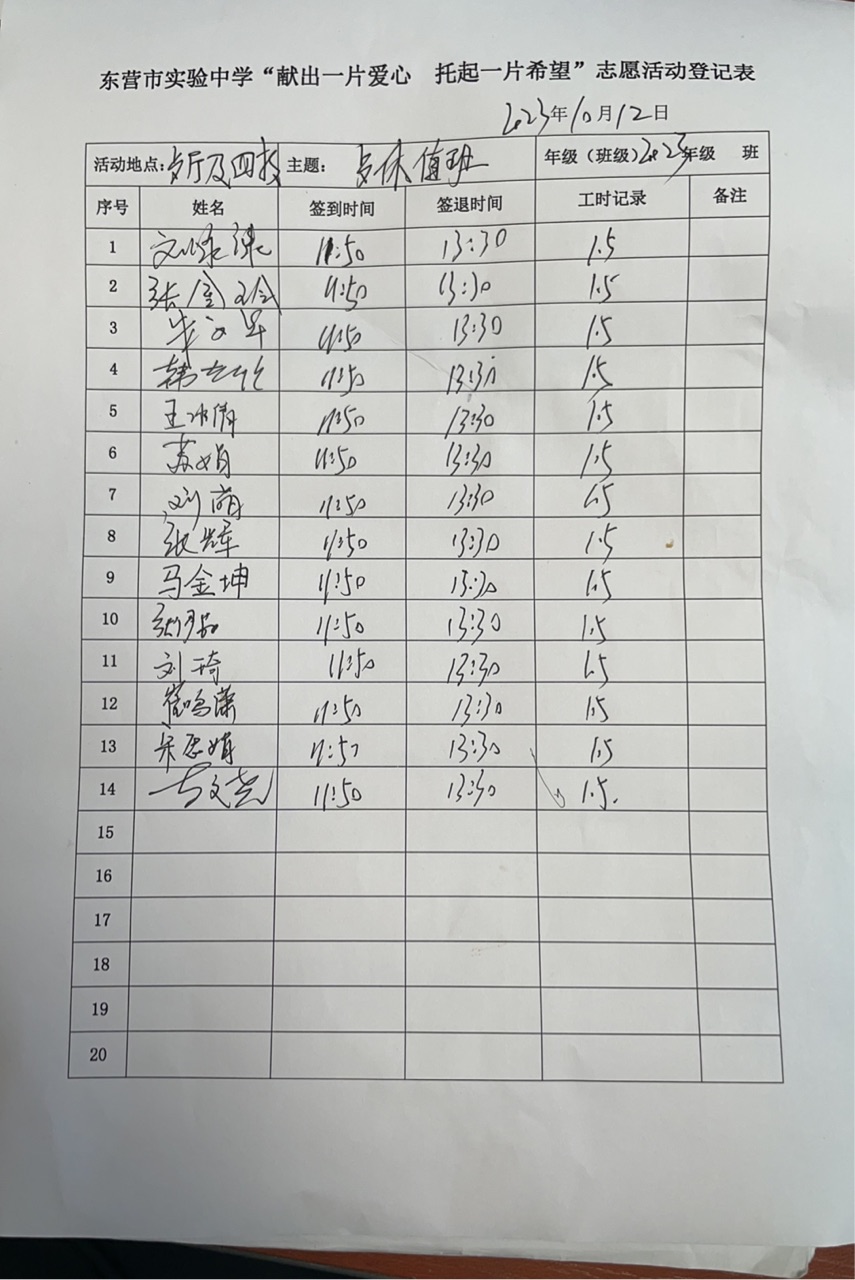 东营市实验中学“献出一片爱心 托起一片希望”志愿活动登记表
2023年10月12日
活动地点: 主题: 午休值班 年级（班级）2023年级 班
序号 姓名 签到时间 签退时间 工时记录 备注
1 11:50 13:30 1.5
2 11:50 13:30 1.5
3 11:50 13:30 1.5
4 11:50 13:30 1.5
5 王冰倩 11:50 13:30 1.5
6 苏娟 11:50 13:30 1.5
7 刘萌 11:50 13:30 1.5
8 张辉 11:50 13:30 1.5
9 马金坤 11:50 13:30 1.5
10 11:50 13:30 1.5
11 刘琦 11:50 13:30 1.5
12 崔鸣潇 11:50 13:30 1.5
13 宋思娟 11:50 13:30 1.5
14 11:50 13:30 1.5.
15
16
17
18
19
20